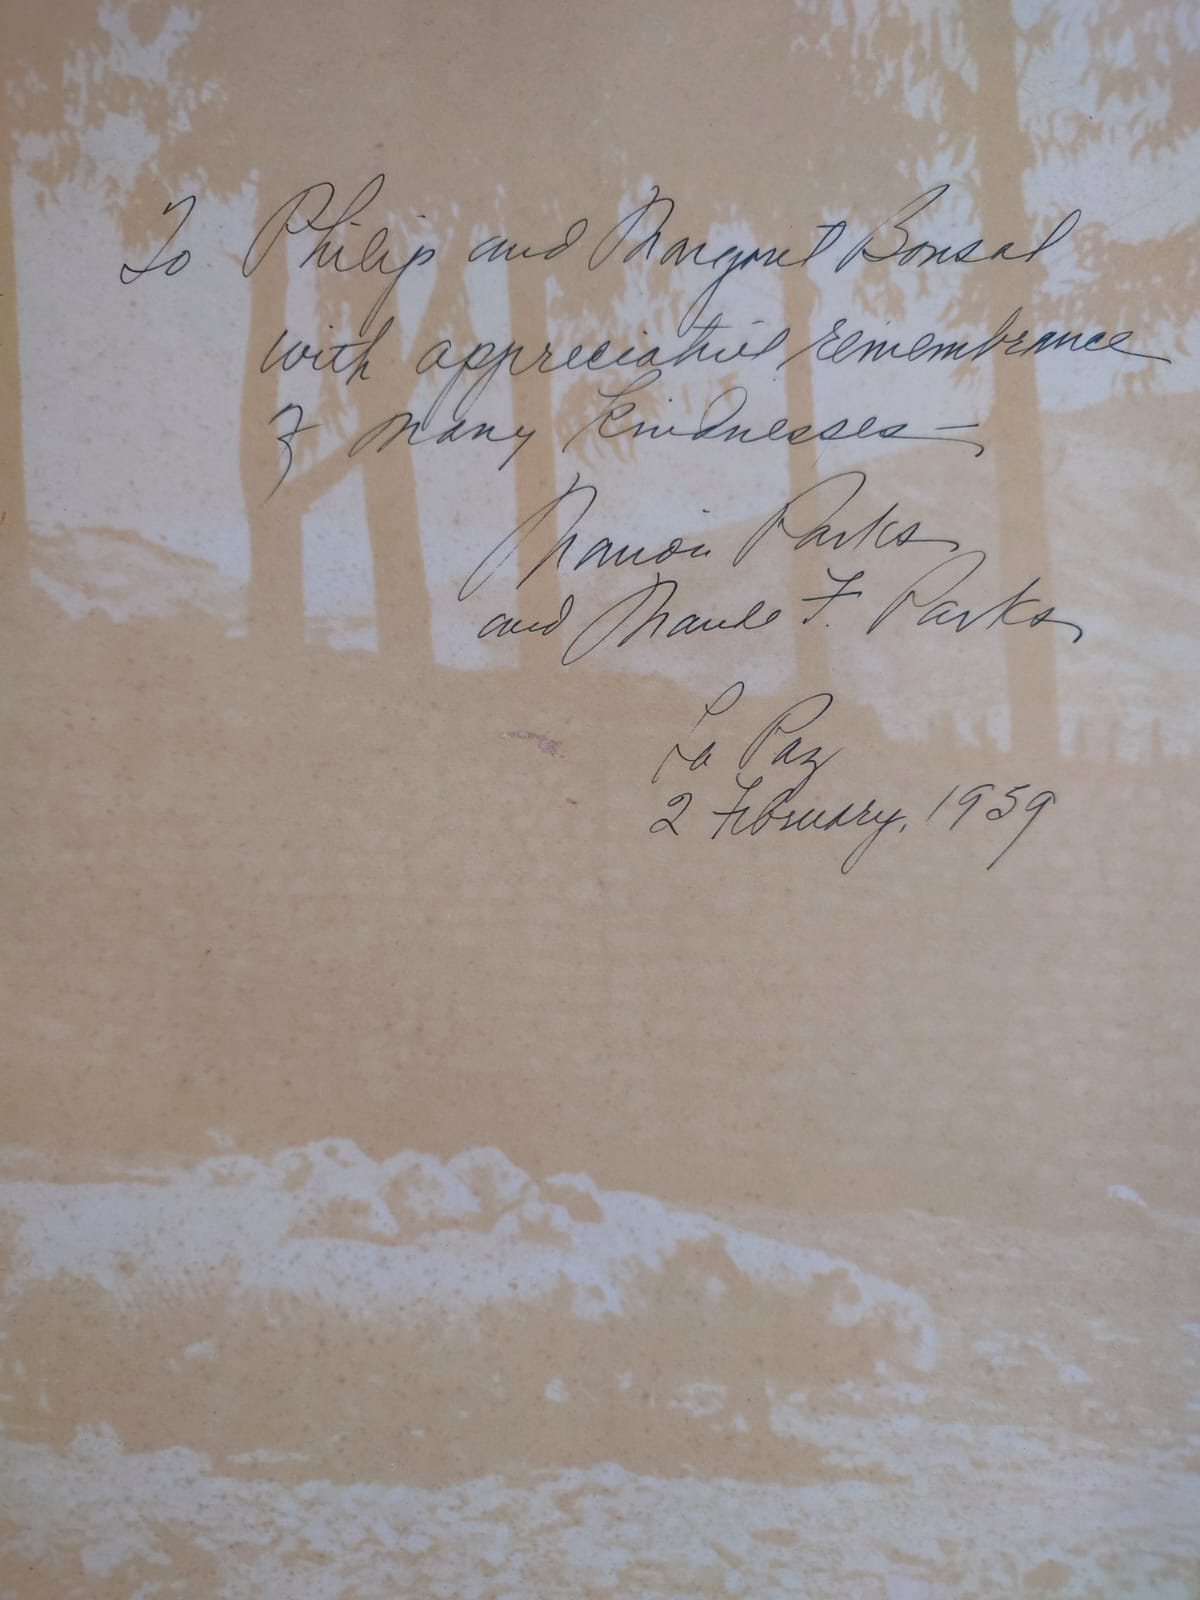 To Philip and Margaret Bonsal
with appreciative remembrance
of many kindnesses—
Marion Parks
and Maude F. Parks
La Paz
2 February, 1959